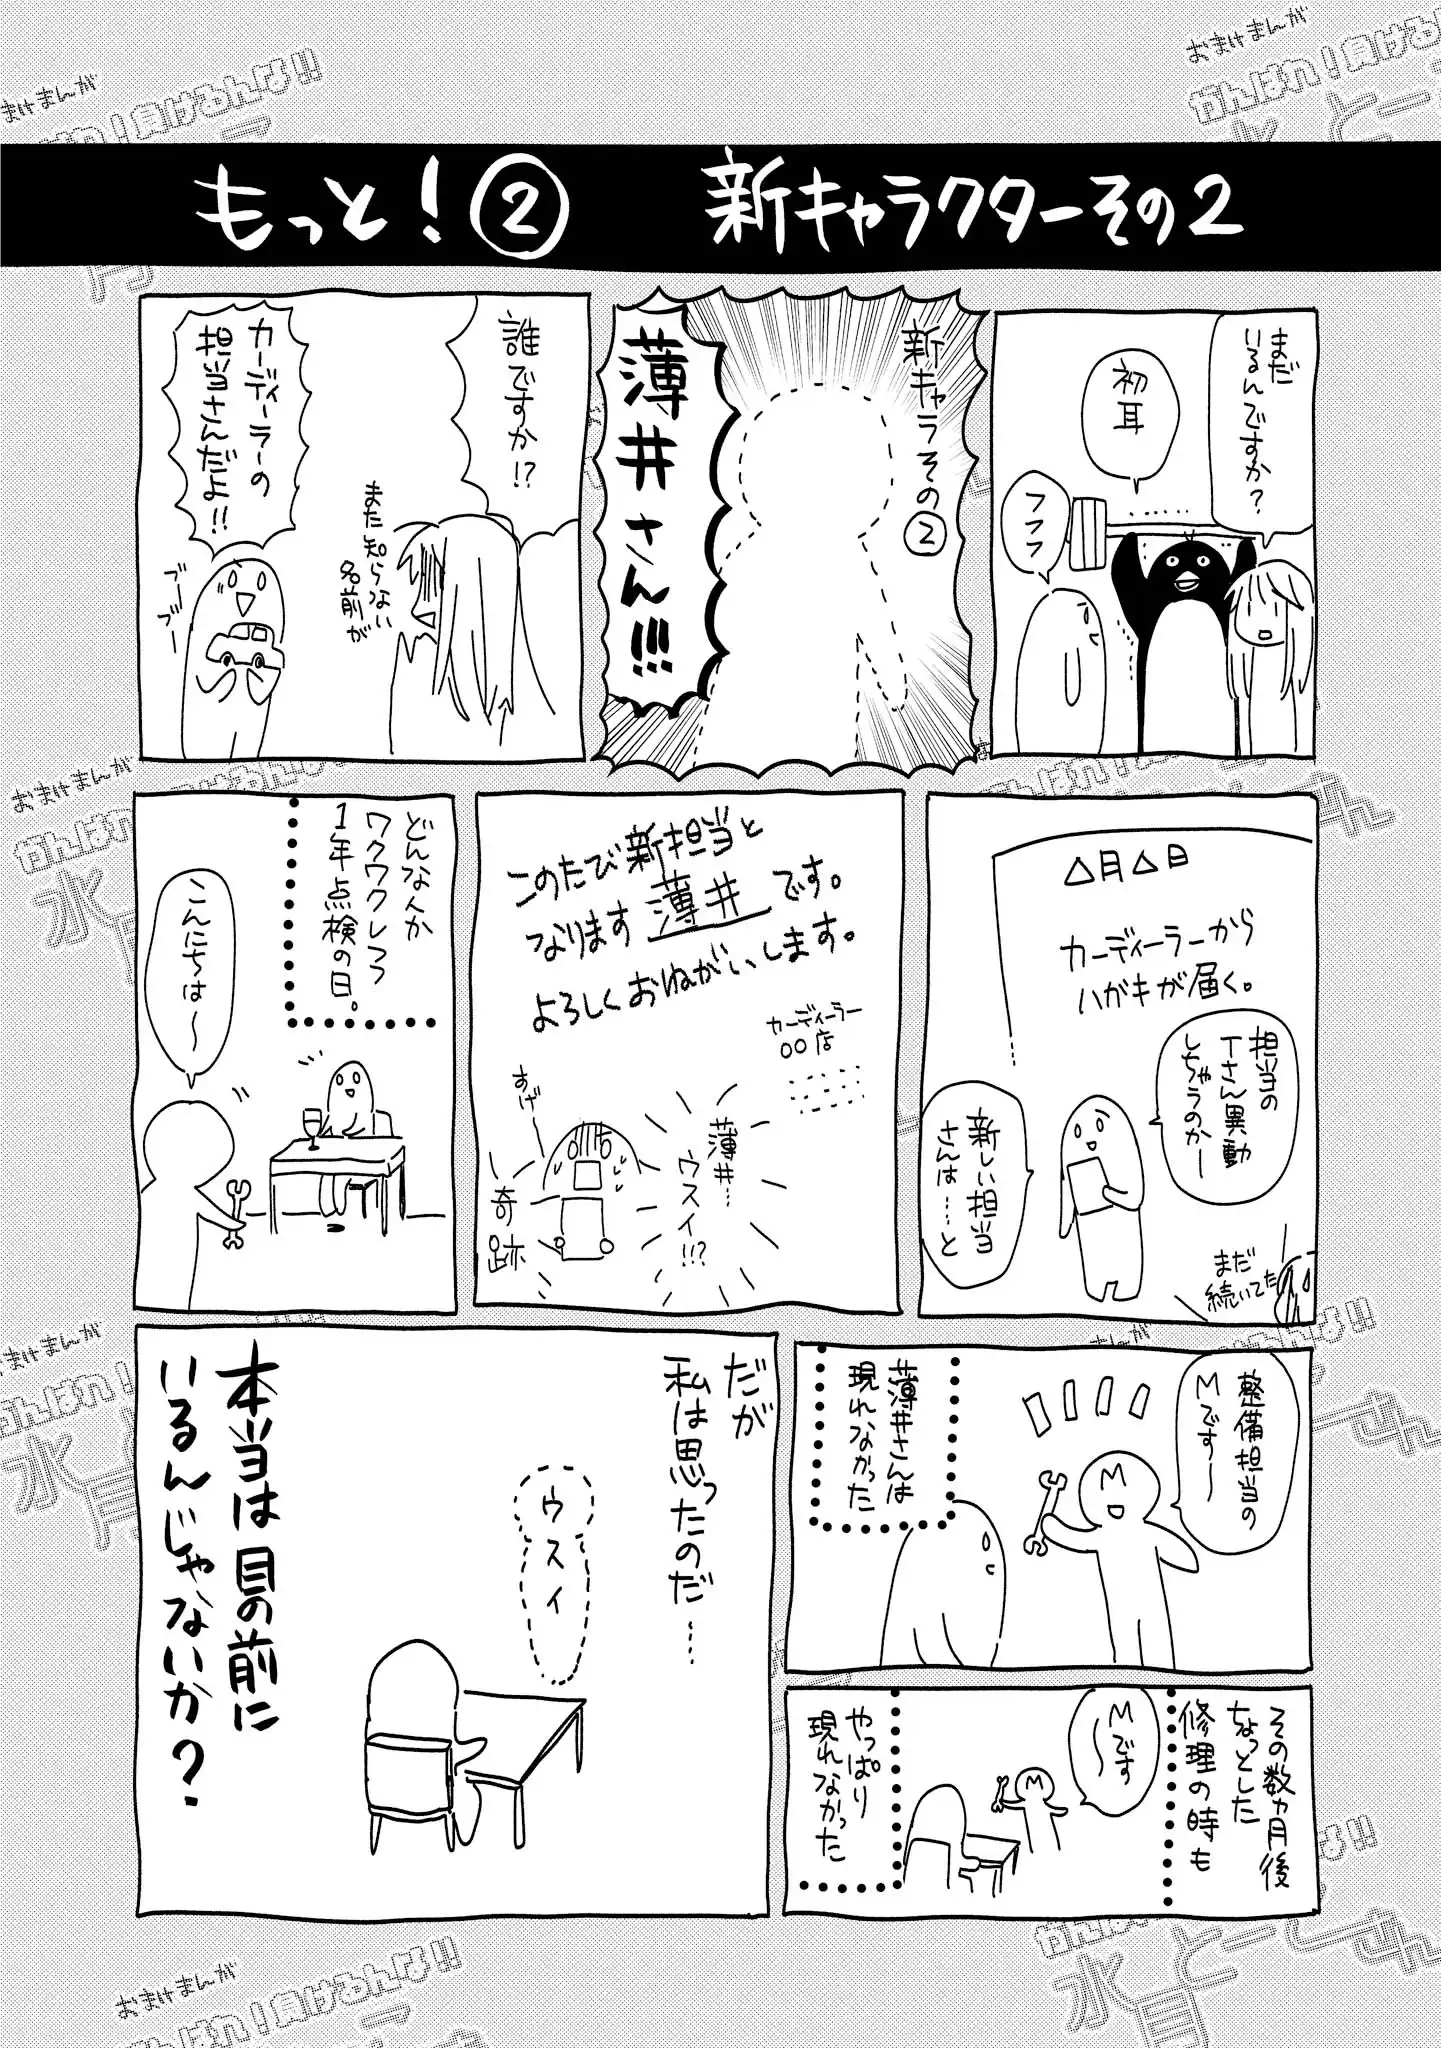 もっと！② 新キャラクターその2
まだ
いるんですか？
初耳
フフフ
新キャラその②
薄井さん!!!
誰ですか!?
また知らない
名前が
カーディーラーの
担当さんだよ!!
ブブー
ブー
△月△日
カーディーラーから
ハガキが届く。
担当の
Tさん異動
しちゃうのかー
新しい担当
さんは……と
まだ
続いてた
このたび新担当と
なります薄井です。
よろしくおねがいします。
カーディーラー
○○店
薄井…
ウスイ!!?
すげー
奇跡
どんなんか
ワクワクしつつ
1年点検の日。
こんにちは〜
整備担当の
Mです〜
M
薄井さんは
現れなかった
その数ヵ月後
ちょっとした
修理の時も
Mです
〜
M
やっぱり
現れなかった
だが
私は思ったのだ……
ウスイ
本当は目の前に
いるんじゃないか？
おまけまんが
がんばれ！負けるんな!!
水